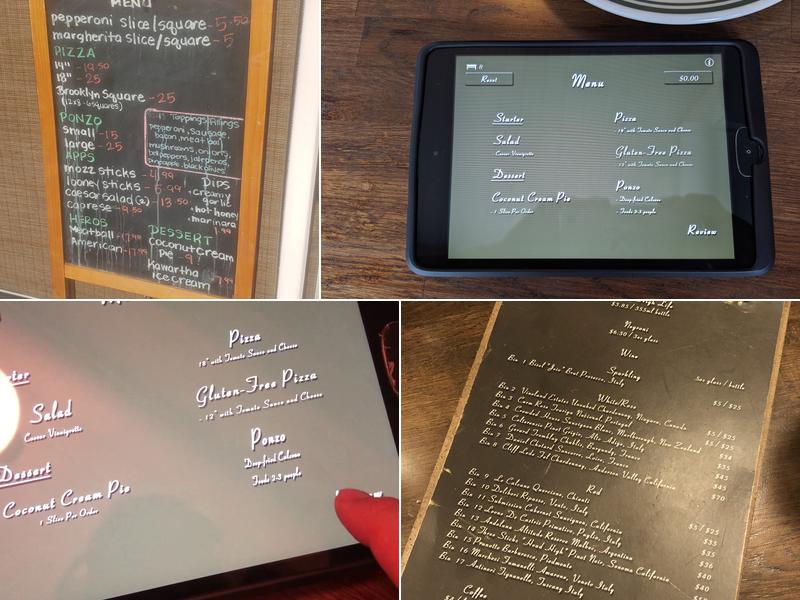 MENU
pepperoni slice/square - 5.50
margherita slice/square - 5
PIZZA
14" - 19.50
18" - 25
Brooklyn Square - 25
(12x8 - 6 squares)
PONZO
small - 15
large - 25
APPS
mozz sticks - 4.99
looney sticks - 5.99
caesar salad (2) - 13.50
caprese - 9.50
HEROS
Meatball - 17.99
American - 17.99
Toppings/fillings
pepperoni, sausage
bacon, meatball
mushrooms, onions,
bell peppers, jalapenos,
pineapple, black olives
DIPS
creamy
garlic
hot honey
marinara
1.99
DESSERT
coconut cream
pie - 9
Kawartha
ice cream
7.99
Reset
Menu
$0.00
Starter
Salad
Caesar Vinaigrette
Dessert
Coconut Cream Pie
- 1 Slice Per Order
Pizza
18" with Tomato Sauce and Cheese
Gluten-Free Pizza
- 12" with Tomato Sauce and Cheese
Ponzo
- Deep-fried Calzone
- Feeds 2-3 people
Review
Salad
Caesar Vinaigrette
Dessert
Coconut Cream Pie
1 Slice Per Order
Pizza
18" with Tomato Sauce and Cheese
Gluten-Free Pizza
- 12" with Tomato Sauce and Cheese
Ponzo
Deep-fried Calzone
Feeds 2-3 people
High Life
$3.85 / 355ml bottle
Negroni
$6.50 / 3oz glass
Wine
Sparkling
5oz glass / bottle
Bin 1 Bosco Prosecco, Italy
$5 / $25
White/Rose
Bin 2 Vineland Estates Unoaked Chardonnay, Niagara, Canada
$5 / $25
Bin 7 Daniel Chotard Sancerre, Loire, France
Bin 8 Cliff Lede Fel Chardonnay, Anderson Valley California
$34
$35
$45
$45
$70
Red
Bin 9 La Colonna Querciona, Chianti
$5 / $25
Bin 10 Delibori Ripasso, Veneto, Italy
Bin 11 Submission Cabernet Sauvignon, California
Bin 13 Andeluna Altitude Reserve Malbec, Argentina
Bin 14 Three Sticks "Head High" Pinot Noir, Sonoma California
Bin 15 Prunotto Barbaresco, Piedmonte
Bin 16 Marchesi Fumanelli Amarone, Veneto Italy
Bin 17 Antinori Tignanello, Tuscany Italy
$35
$35
$36
$40
$40
Coffee